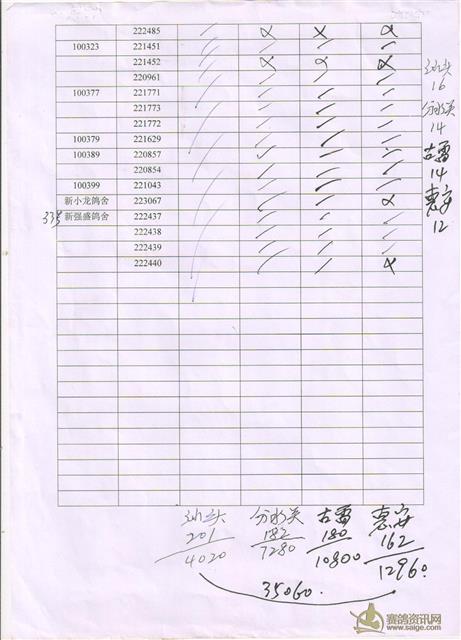 222485 / α α α
100323 222451 / / / /
222452 / α α α
220961 / / / /
100377 221771 / / / /
222773 / / / /
221772 / / / /
100379 221629 / / / /
100389 220857 / ✓ / /
220854 / / / /
100399 221043 / / / /
新小龙鸽舍 223067 / / / α
335 新强盛鸽舍 222437 / / / /
222438 / / / /
222439 / / / /
222440 / / / α
汕头
16
分水关
14
古雷
14
惠安
12
汕头 分水关 古雷 惠安
201 182 180 162
4020 7280 10800 12960.
35060.
赛鸽资讯网
www.saige.com